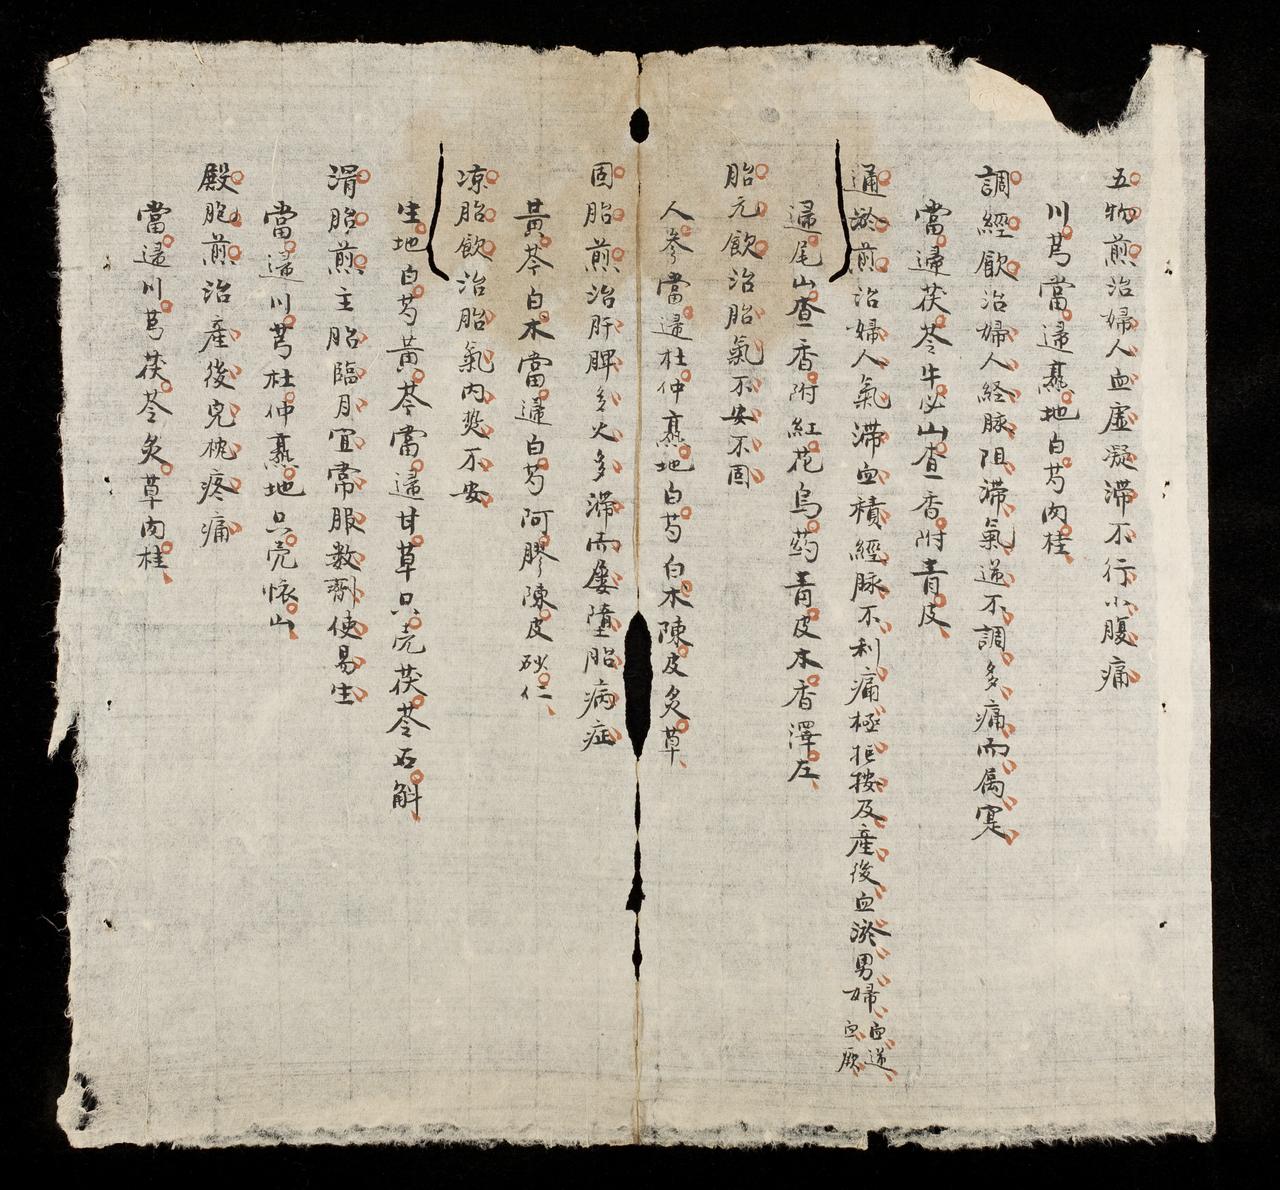 五物煎治婦人血虛凝滯不行小腹痛
川芎當歸熹地白芍肉桂
調經飮治婦人経脉阻滯氣逆不調多痛而属寔
當歸茯苓牛必山查香附青皮
通瘀煎治婦人氣滯血積經脉不利痛極拒按及産後血瘀男婦血逆血厥
歸尾山查香附紅花烏药青皮木香澤左
胎元飲治胎氣不安不固
人參當歸杜仲熹地白芍白术陳皮炙草
固胎煎治肝脾多火多滯而屡墮胎病症
黃芩白术當歸白芍阿膠陳皮砂仁
凉胎飲治胎氣内热不安
生地白芍黃芩當歸甘草只壳茯苓石斛
滑胎煎主胎臨月宜常服数劑使易生
當歸川芎杜仲熹地只壳懷山
殿胞煎治産後兒枕疼痛
當歸川芎茯苓炙草肉桂